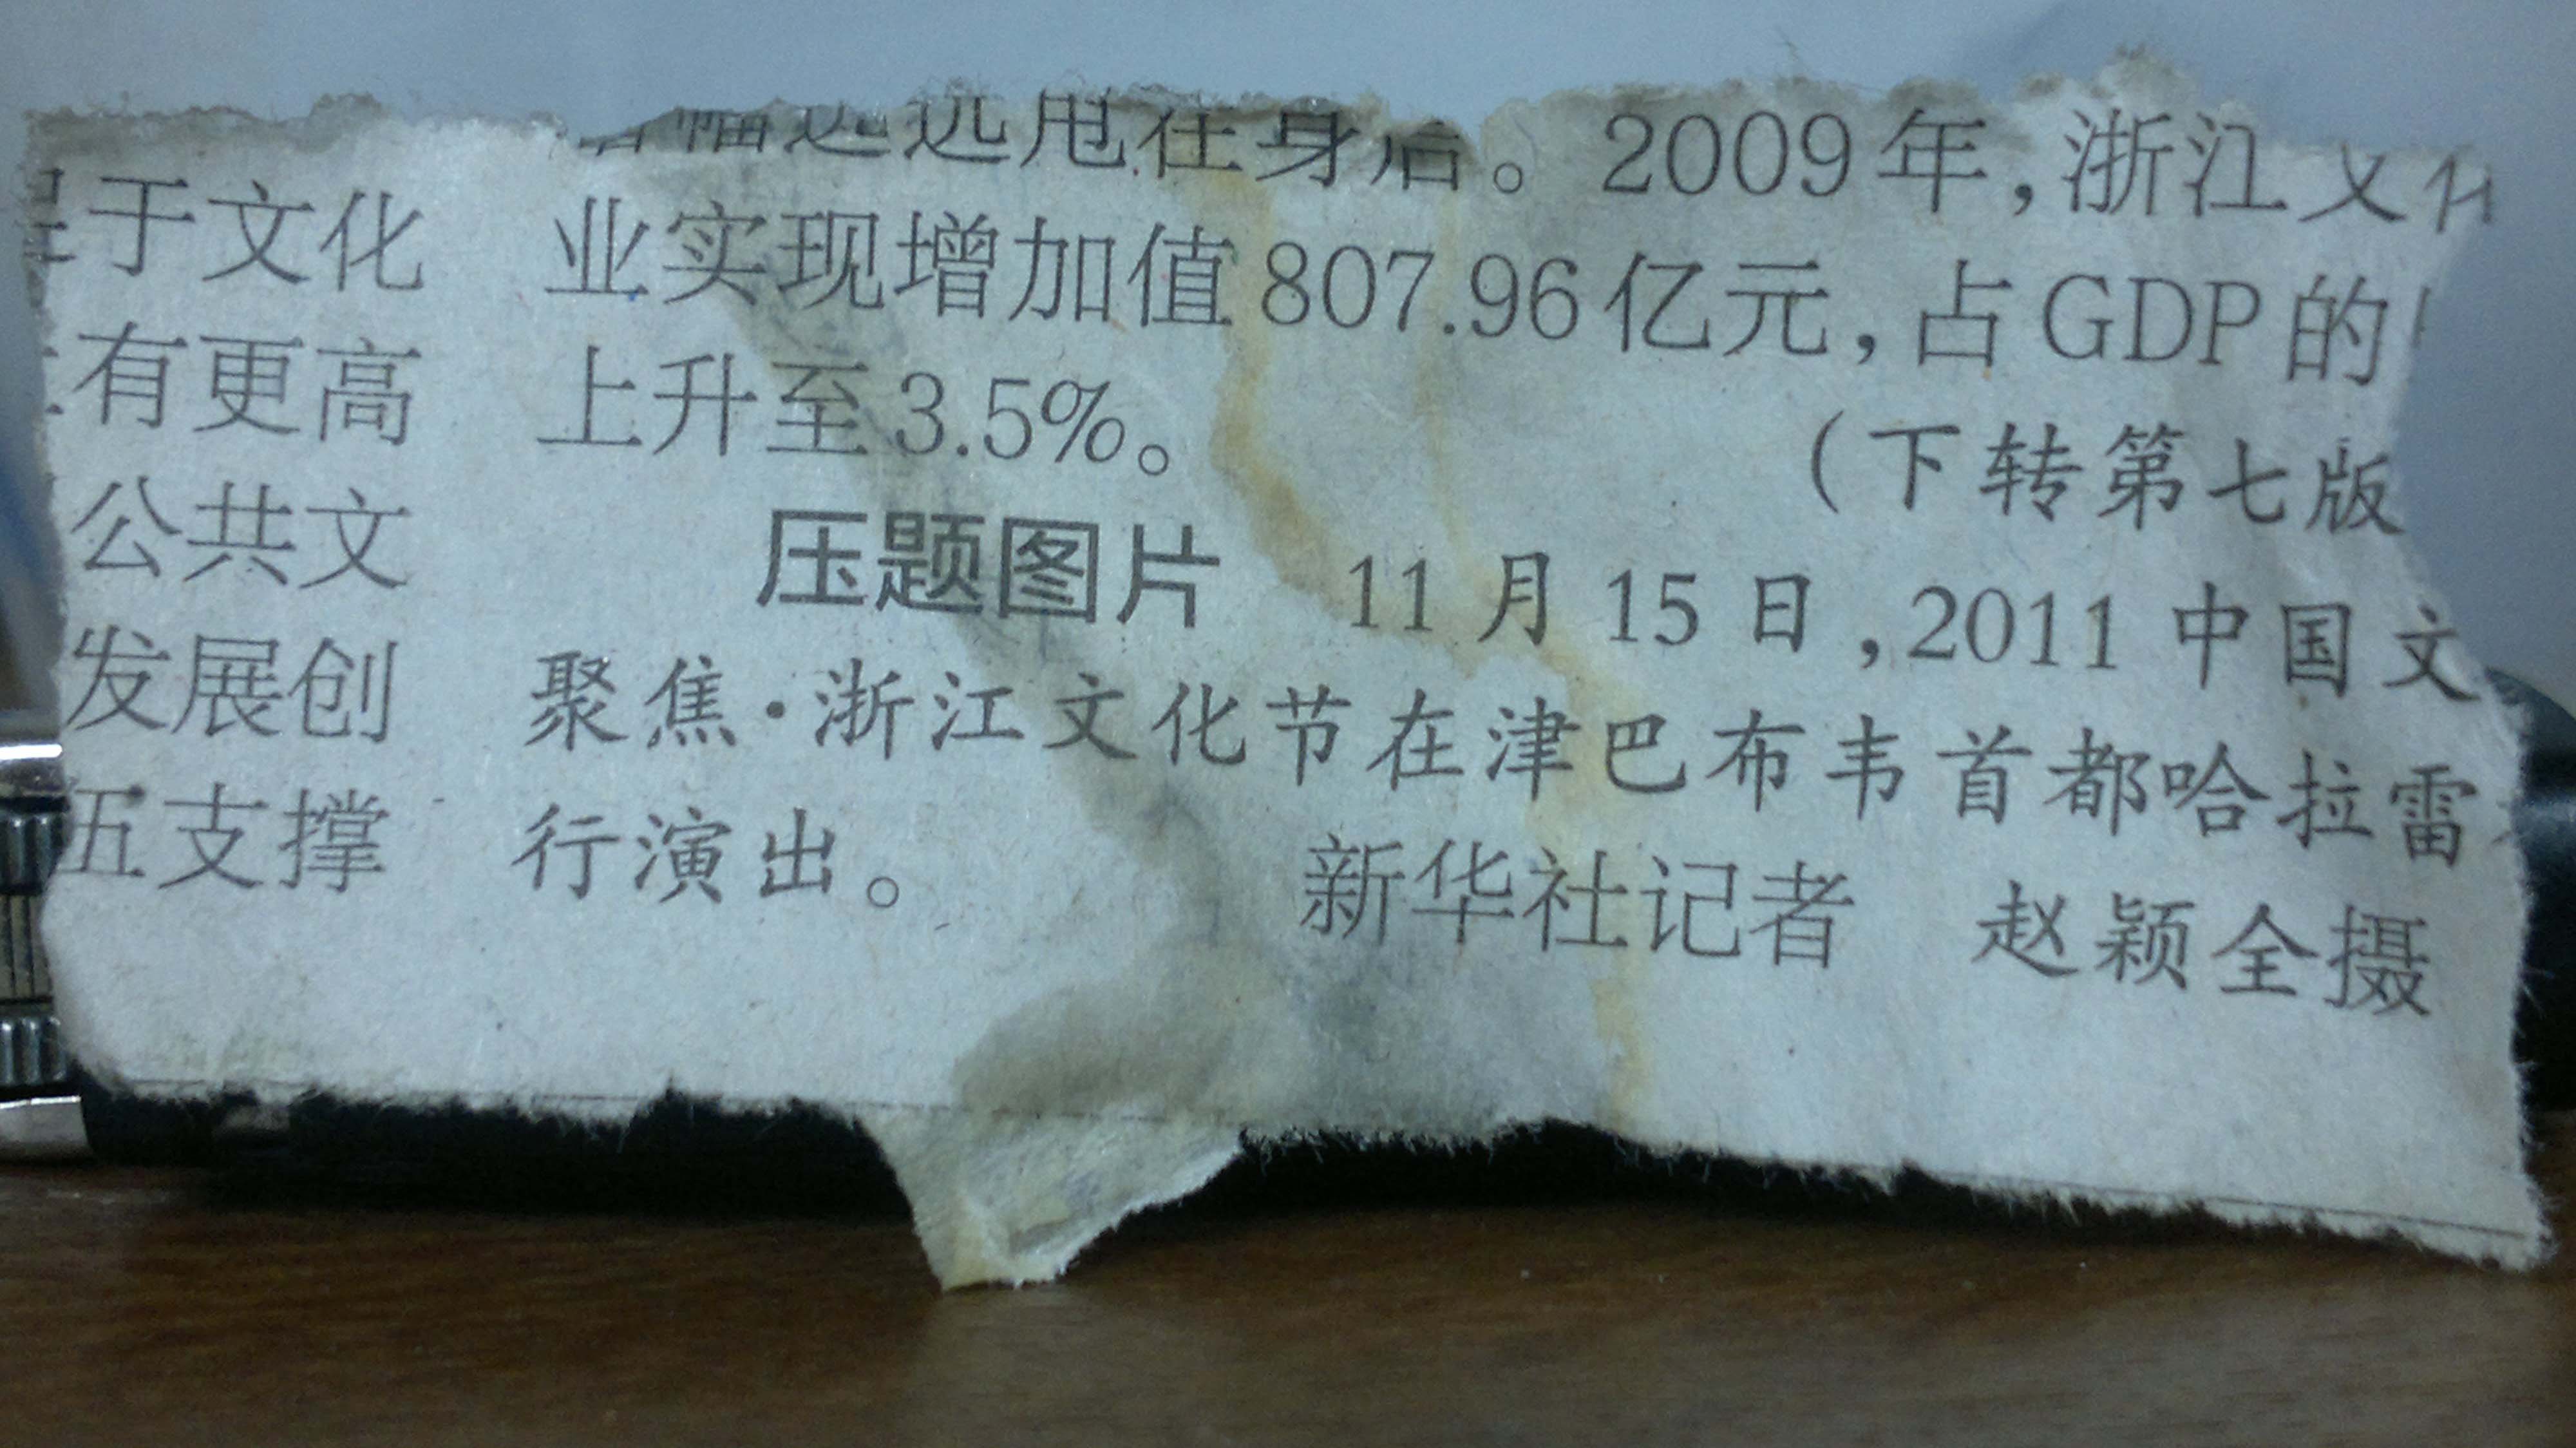 于文化
有更高
公共文
发展创
伍支撑
幅远远甩在身后。2009年,浙江文化
业实现增加值807.96亿元,占GDP的
上升至3.5%。
(下转第七版
压题图片 11月15日,2011中国文
聚焦·浙江文化节在津巴布韦首都哈拉雷
行演出。
新华社记者 赵颖全摄